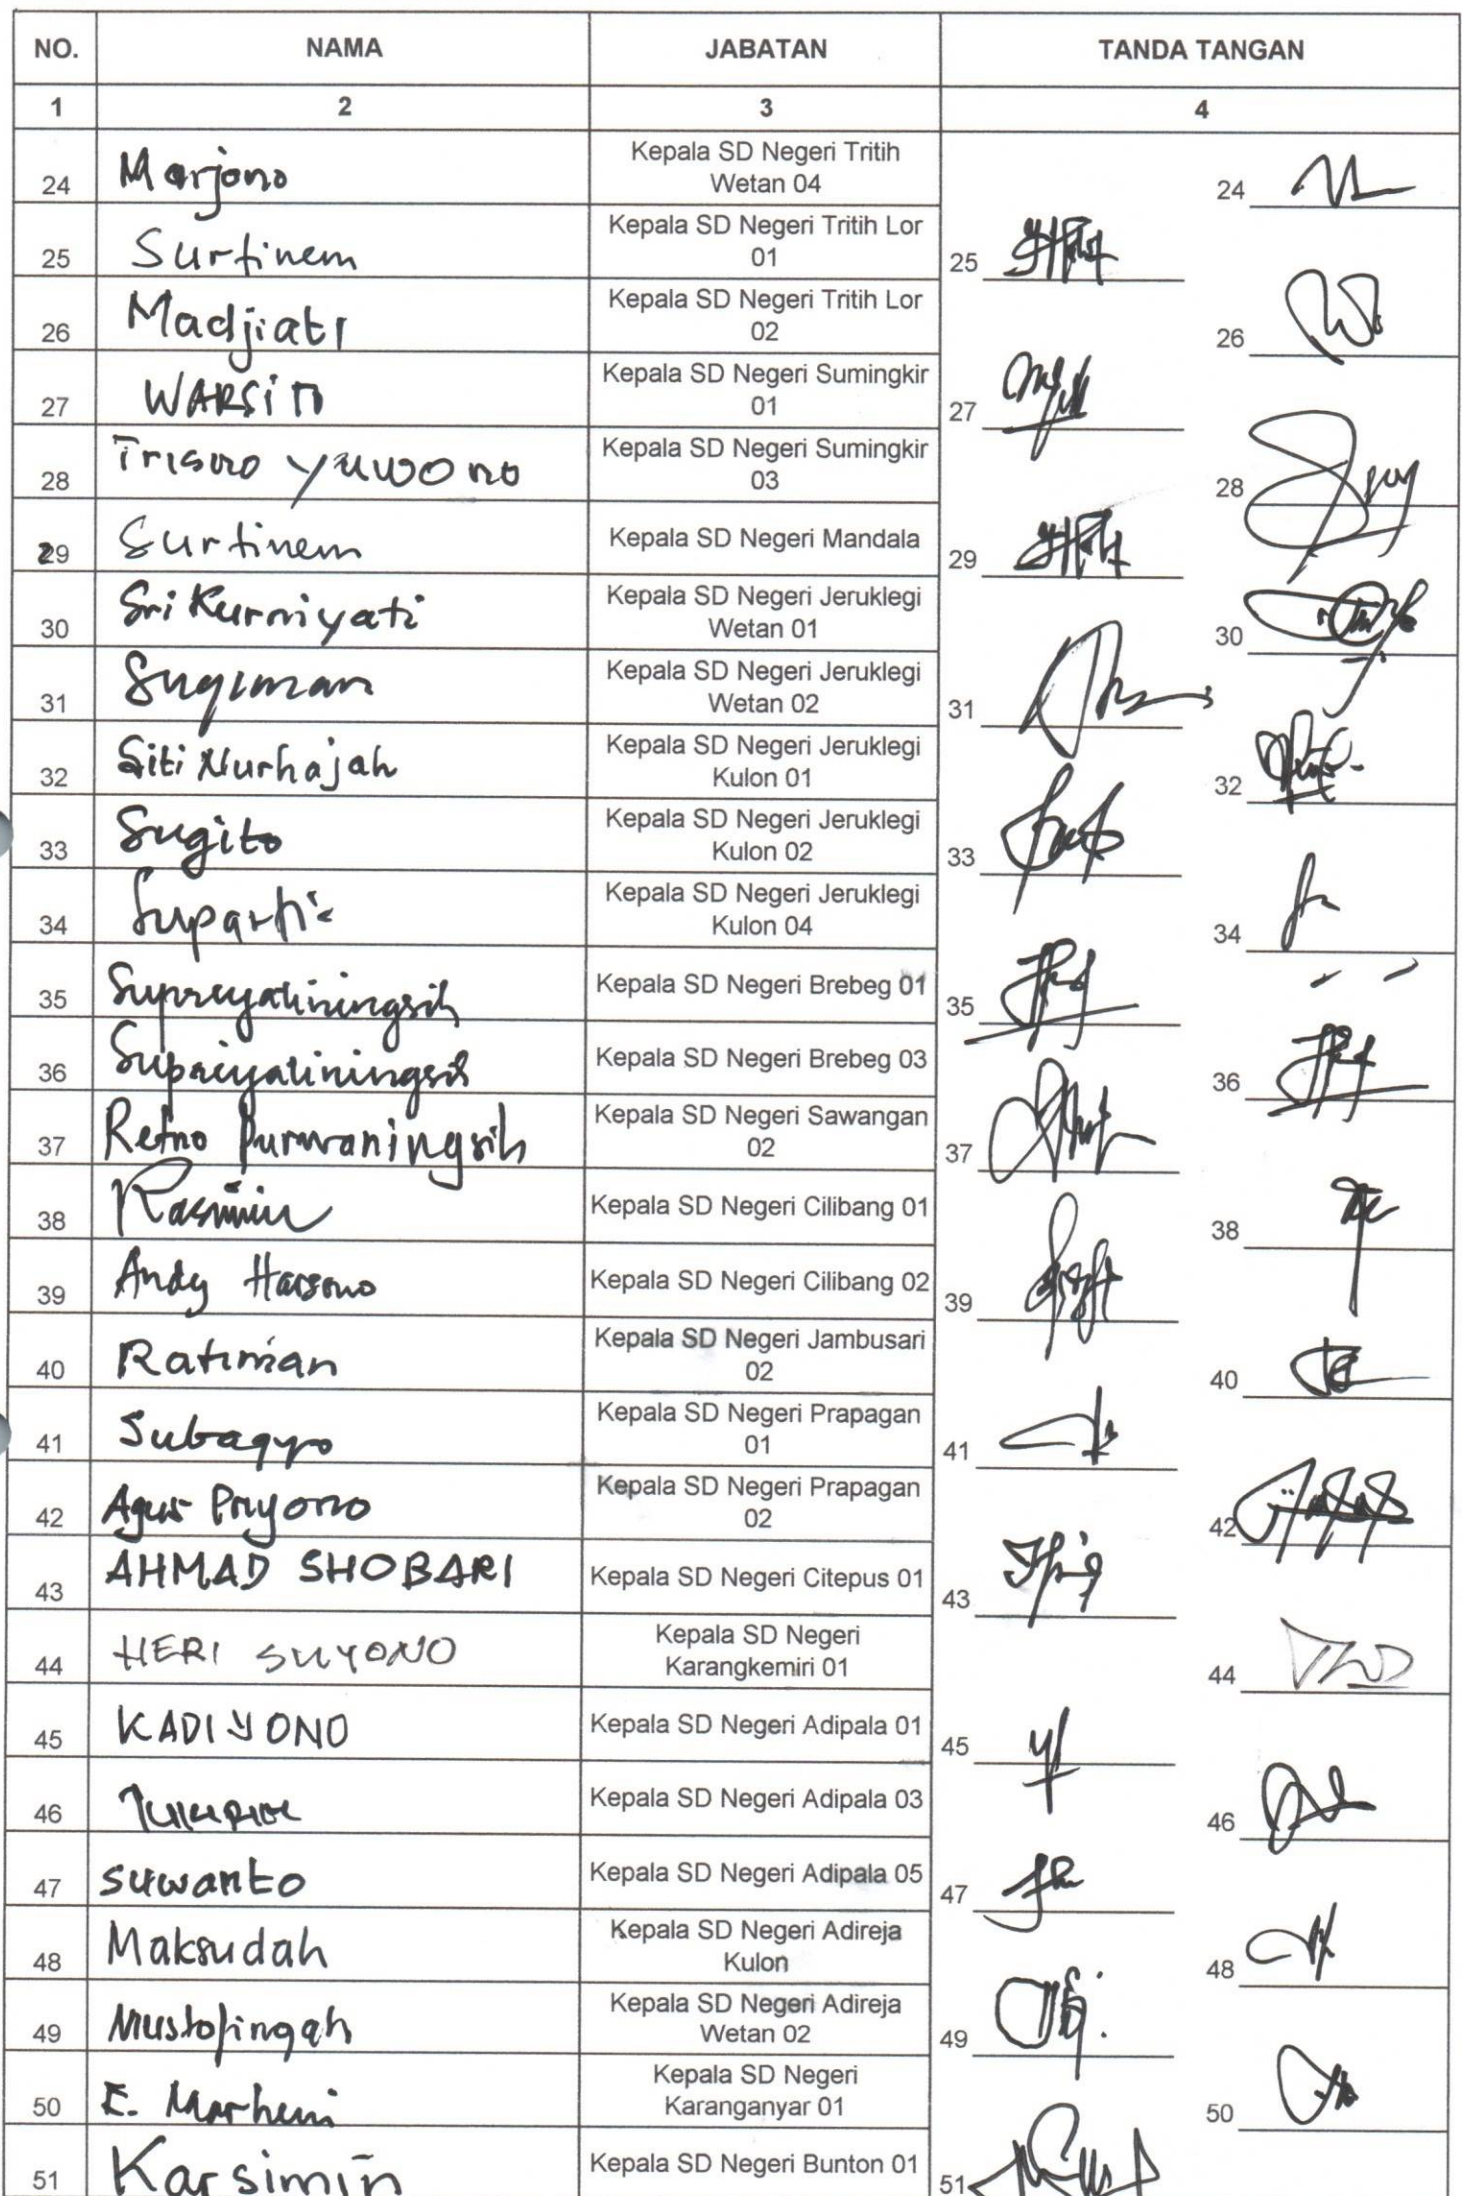 NO. NAMA JABATAN TANDA TANGAN
1 2 3 4
24 Marjono Kepala SD Negeri Tritih Wetan 04 24
25 Surtinem Kepala SD Negeri Tritih Lor 01 25
26 Madjiati Kepala SD Negeri Tritih Lor 02 26
27 WARSITO Kepala SD Negeri Sumingkir 01 27
28 Trisno Yuwono Kepala SD Negeri Sumingkir 03 28
29 Surtinem Kepala SD Negeri Mandala 29
30 Sri Kurniyati Kepala SD Negeri Jeruklegi Wetan 01 30
31 Sugiman Kepala SD Negeri Jeruklegi Wetan 02 31
32 Siti Nurhajah Kepala SD Negeri Jeruklegi Kulon 01 32
33 Sugito Kepala SD Negeri Jeruklegi Kulon 02 33
34 Suparti Kepala SD Negeri Jeruklegi Kulon 04 34
35 Supreyatiningsih Kepala SD Negeri Brebeg 01 35
36 Supreyatiningsih Kepala SD Negeri Brebeg 03 36
37 Retno Purwaningsih Kepala SD Negeri Sawangan 02 37
38 Rasimin Kepala SD Negeri Cilibang 01 38
39 Andy Harsono Kepala SD Negeri Cilibang 02 39
40 Ratiman Kepala SD Negeri Jambusari 02 40
41 Subagyo Kepala SD Negeri Prapagan 01 41
42 Agus Priyono Kepala SD Negeri Prapagan 02 42
43 AHMAD SHOBARI Kepala SD Negeri Citepus 01 43
44 HERI SUYONO Kepala SD Negeri Karangkemiri 01 44
45 KADIYONO Kepala SD Negeri Adipala 01 45
46 Kepala SD Negeri Adipala 03 46
47 Suwanto Kepala SD Negeri Adipala 05 47
48 Maksudah Kepala SD Negeri Adireja Kulon 48
49 Mustofingah Kepala SD Negeri Adireja Wetan 02 49
50 E. Marheni Kepala SD Negeri Karanganyar 01 50
51 Karsimin Kepala SD Negeri Bunton 01 51